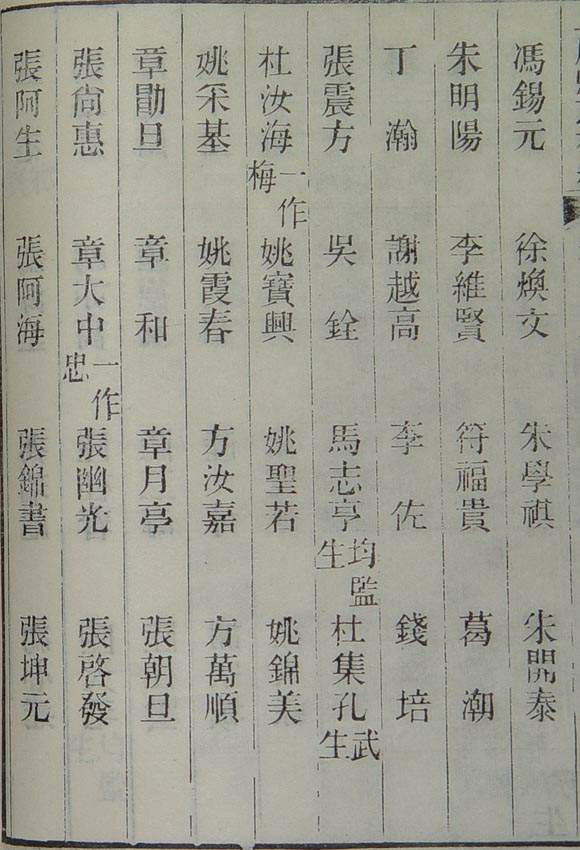 馮錫元　徐煥文　朱學祺　朱開泰
朱明陽　李維賢　符福貴　葛　潮
丁　瀚　謝越高　李　佐　錢　培
張震方　吳　銓　馬志亨均監生　杜集孔武生
杜汝海一作梅　姚寶興　姚聖若　姚錦美
姚采基　姚霞春　方汝嘉　方萬順
章勛旦　章　和　章月亭　張朝旦
張尙惠　章大中一作忠　張幽光　張啓發
張阿生　張阿海　張錦書　張坤元